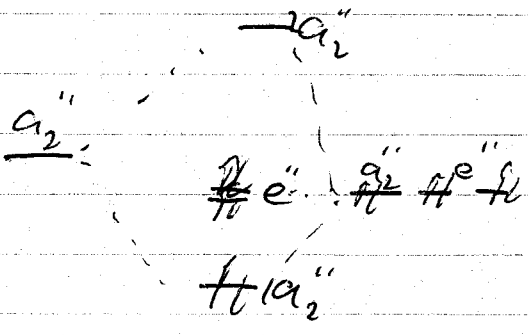 2a₂''
a₂''
e'' a₂'' e''
1a₂''